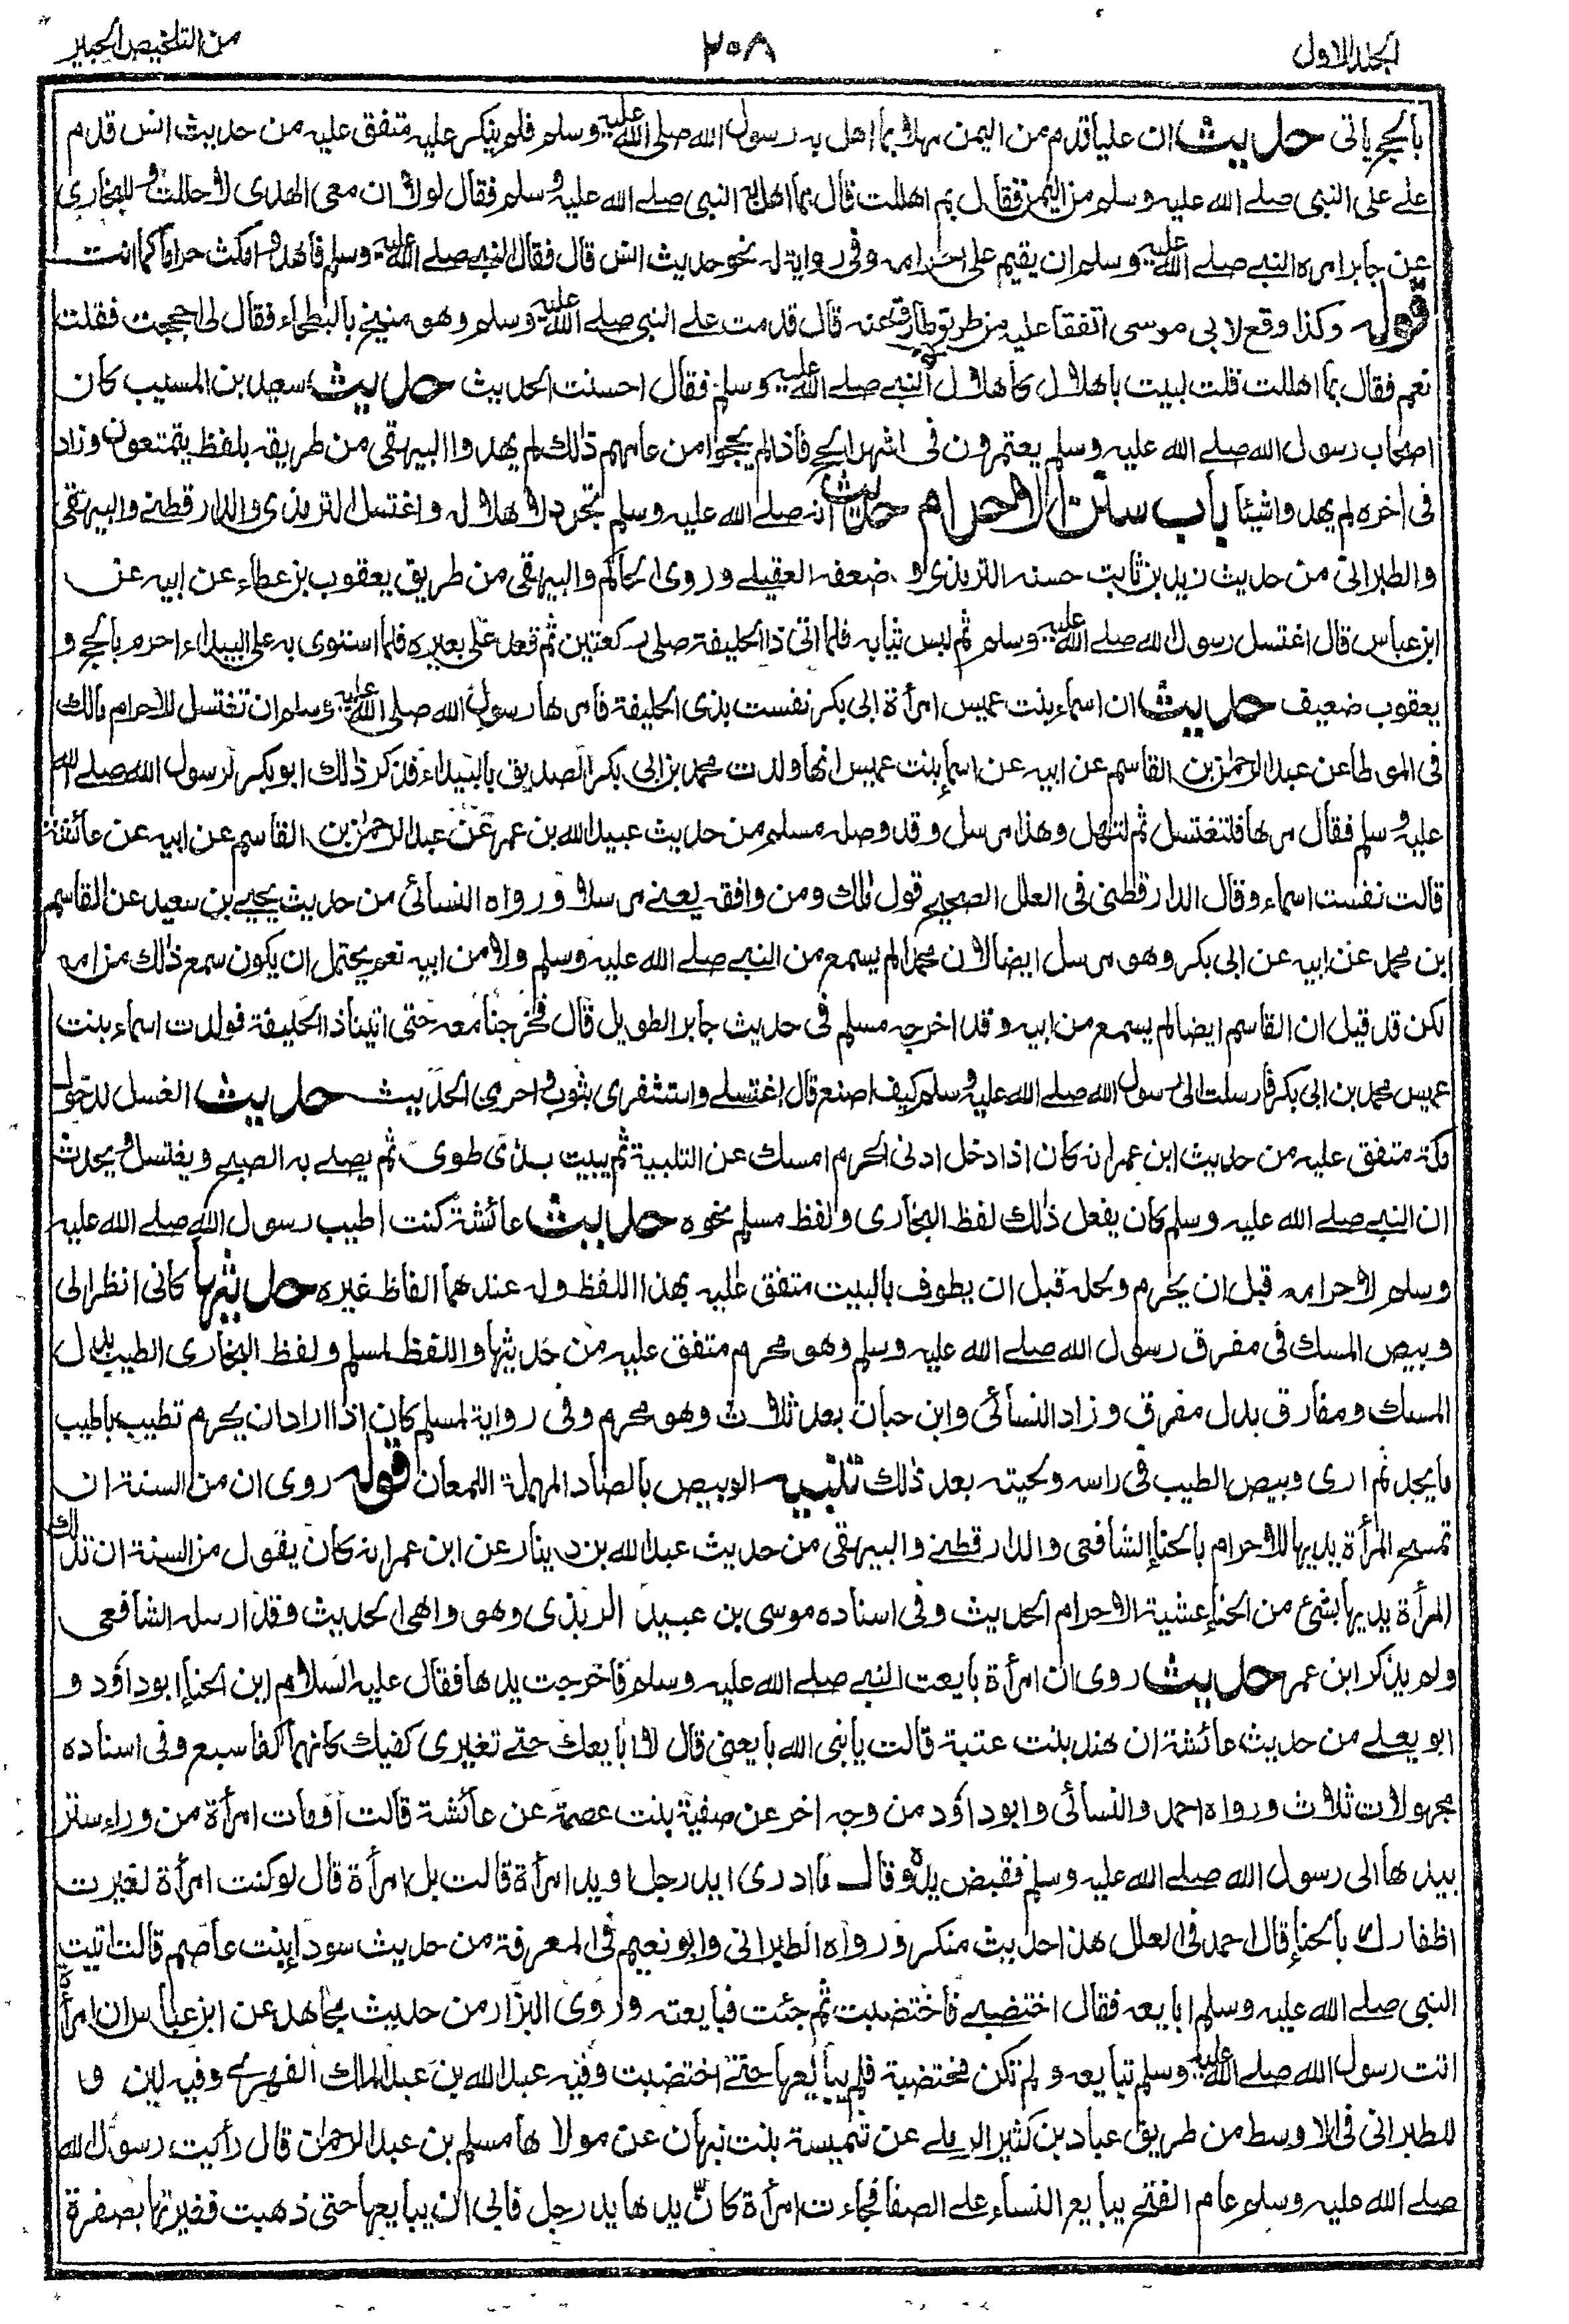 الجلد الاول
٢٠٨
من التلخيص الحبير
بالحج ياتى حديث ان عليا قدم من اليمن مهلا بما اهل به رسول الله صلى الله عليه وسلم فلم ينكر عليه متفق عليه من حديث انس قدم
على على النبى صلے الله عليه وسلم من اليمن فقال بم اهللت قال بما اهل به النبى صلے الله عليه وسلم فقال لولا ان معى الهدى لاحللت وللبخارى
عن جابر امره النبى صلے الله عليه وسلم ان يقيم على احرامه وفى رواية له نحو حديث انس قال فقال النبى صلے الله عليه وسلم فأهد وامكث حراما كما انت
قوله وكذا وقع لابى موسى اتفقا عليه من طريق طارق عنه قال قدمت على النبى صلے الله عليه وسلم وهو منيخ بالبطحاء فقال لى احججت فقلت
نعم فقال بما اهللت قلت لبيت باهلال كاهلال النبى صلے الله عليه وسلم فقال احسنت الحديث حديث سعيد بن المسيب كان
اصحاب رسول الله صلے الله عليه وسلم يعتمرون فى اشهر الحج فاذا لم يحجوا من عامهم ذلك لم يهدوا البيهقى من طريقه بلفظ يتمتعون وزاد
فى اخره لم يهدوا شيئا باب سنن الاحرام حديث انه صلے الله عليه وسلم تجرد لاهلاله واغتسل الترمذى والدارقطنے والبيهقى
والطبرانى من حديث زيد بن ثابت حسنه الترمذى وضعفه العقيلے وروى الحاكم والبيهقى من طريق يعقوب بن عطاء عن ابيه عن
ابن عباس قال اغتسل رسول الله صلے الله عليه وسلم ثم لبس ثيابه فلما اتى ذا الحليفة صلى ركعتين ثم قعد على بعيره فلما استوى به على البيداء احرم بالحج و
يعقوب ضعيف حديث ان اسماء بنت عميس امرأة ابى بكر نفست بذى الحليفة فامرها رسول الله صلى الله عليه وسلم ان تغتسل للاحرام مالك
فى الموطا عن عبد الرحمن بن القاسم عن ابيه عن اسماء بنت عميس انها ولدت محمد بن ابى بكر الصديق بالبيداء فذكر ذلك ابو بكر لرسول الله صلے الله
عليه وسلم فقال مرها فلتغتسل ثم لتهل وهذا مرسل وقد وصله مسلم من حديث عبيد الله بن عمر عن عبد الرحمن بن القاسم عن ابيه عن عائشة
قالت نفست اسماء وقال الدارقطنى فى العلل الصحيح قول مالك ومن وافقه يعنے مرسلا ورواه النسائى من حديث يحيى بن سعيد عن القاسم
ابن محمد عن ابيه عن ابى بكر وهو مرسل ايضا لان محمدا لم يسمع من النبى صلے الله عليه وسلم ولا من ابيه نعم يحتمل ان يكون سمع ذلك من امه
لكن قد قيل ان القاسم ايضا لم يسمع من ابيه وقد اخرجه مسلم فى حديث جابر الطويل قال فخرجنا معه حتى اتينا ذا الحليفة فولدت اسماء بنت
عميس محمد بن ابى بكر فارسلت الى رسول الله صلے الله عليه وسلم كيف اصنع قال اغتسلے واستثفرى بثوب واحرمى الحديث حديث الغسل لدخول
مكة متفق عليه من حديث ابن عمر انه كان اذا دخل ادنى الحرم امسك عن التلبية ثم يبيت بذى طوى ثم يصلے به الصبح ويغتسل ويحدث
ان النبى صلے الله عليه وسلم كان يفعل ذلك لفظ البخارى ولفظ مسلم نحوه حديث عائشة كنت اطيب رسول الله صلے الله عليه
وسلم لاحرامه قبل ان يحرم ولحله قبل ان يطوف بالبيت متفق عليه بهذا اللفظ وله عندهما الفاظ غيره حديثها كانى انظر الى
وبيص المسك فى مفرق رسول الله صلے الله عليه وسلم وهو محرم متفق عليه من حديثها واللفظ لمسلم ولفظ البخارى الطيب بدل
المسك ومفارق بدل مفرق وزاد النسائى وابن حبان بعد ثلاث وهو محرم وفى رواية لمسلم كان اذا اراد ان يحرم تطيب باطيب
ما يجد ثم ارى وبيص الطيب فى راسه ولحيته بعد ذلك تنبيه الوبيص بالصاد المهملة اللمعان قوله روى ان من السنة ان
تمسح المرأة يديها للاحرام بالحناء الشافعى والدارقطنے والبيهقى من حديث عبد الله بن دينار عن ابن عمر انه كان يقول من السنة ان تدلك
المرأة يديها بشئ من الحناء عشية الاحرام الحديث وفى اسناده موسى بن عبيد الربذى وهو واهى الحديث وقد ارسله الشافعى
ولم يذكر ابن عمر حديث روى ان امرأة بايعت النبى صلے الله عليه وسلم فاخرجت يدها فقال عليه السلام اين الحناء ابو داؤد و
ابو يعلے من حديث عائشة ان هند بنت عتبة قالت يا نبى الله بايعنى قال لا ابايعك حتے تغيرى كفيك كانهما كفا سبع وفى اسناده
مجهولات ثلاث ورواه احمد والنسائى وابو داؤد من وجه اخر عن صفية بنت عصمة عن عائشة قالت اومأت امرأة من وراء ستر
بيدها الى رسول الله صلے الله عليه وسلم فقبض يده وقال ما ادرى ايد رجل او يد امرأة قالت بل امرأة قال لو كنت امرأة لغيرت
اظفارك بالحناء قال احمد فى العلل هذا حديث منكر ورواه الطبرانى وابو نعيم فى المعرفة من حديث سوداء بنت عاصم قالت اتيت
النبى صلے الله عليه وسلم ابايعه فقال اختضبے فاختضبت ثم جئت فبايعته وروى البزار من حديث مجاهد عن ابن عباس ان امرأة
اتت رسول الله صلے الله عليه وسلم تبايعه ولم تكن مختضبة فلم يبايعها حتے اختضبت وفيه عبد الله بن عبد الملك الفهرى وفيه لين و
للطبرانى فى الاوسط من طريق عباد بن كثير الرملے عن شميسة بنت نبهان عن مولاها مسلم بن عبد الرحمن قال رأيت رسول الله
صلے الله عليه وسلم عام الفتح يبايع النساء على الصفا فجاءت امرأة كان يدها يد رجل فابى ان يبايعها حتى ذهبت فغيرتها بصفرة